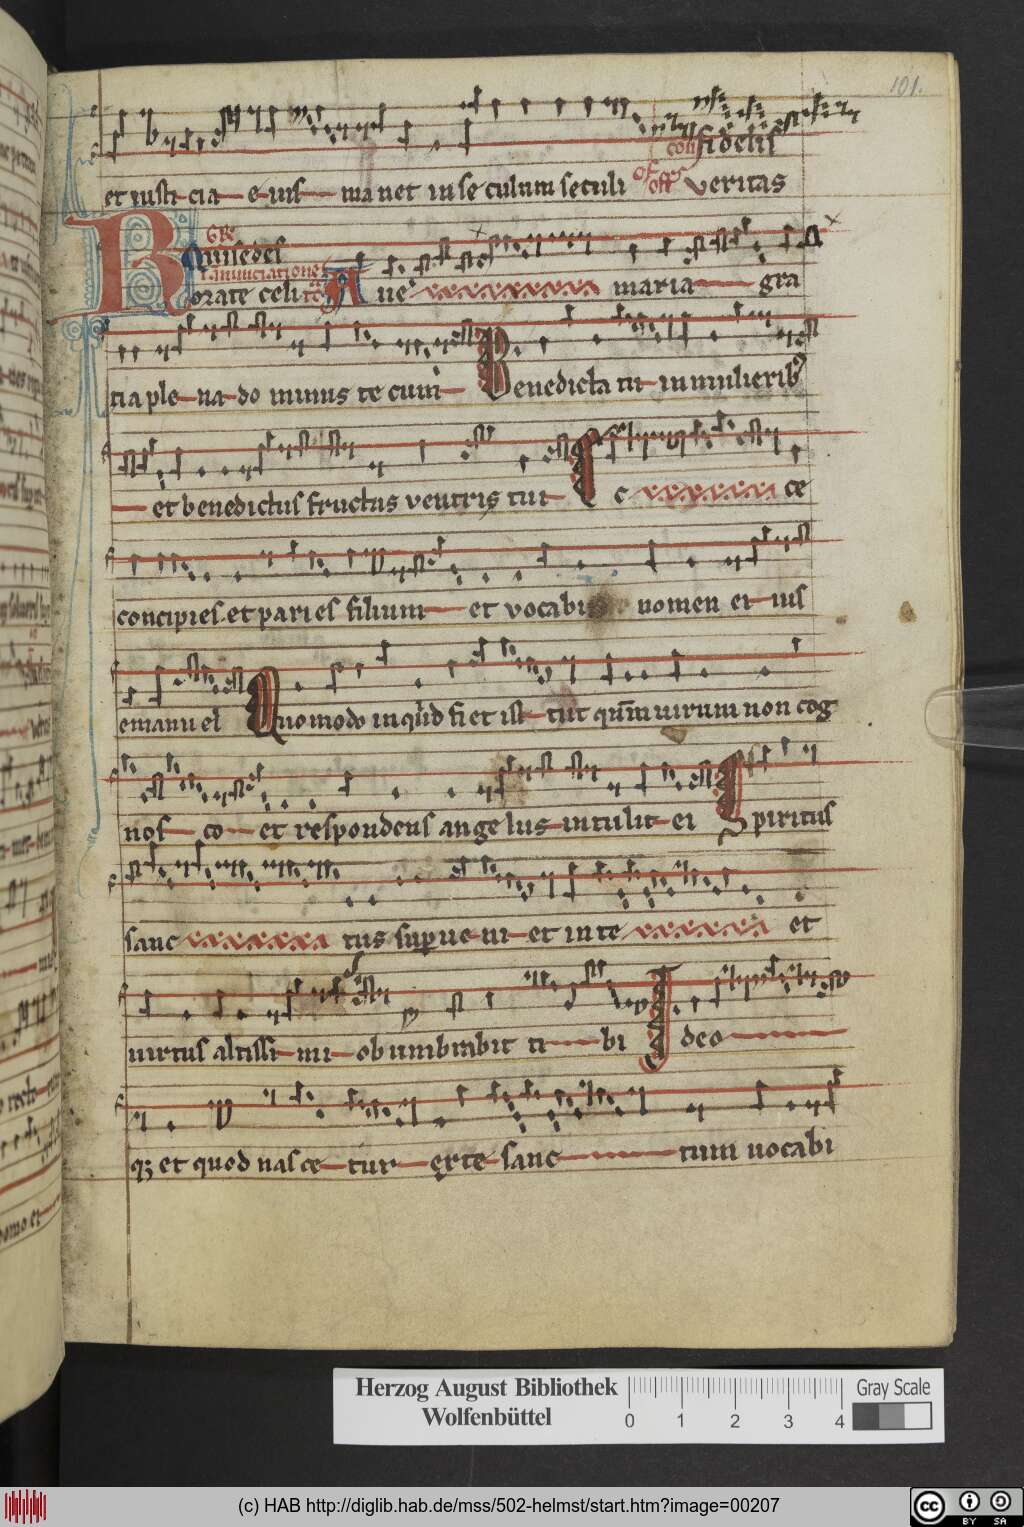 101.
et iusti cia e ius ma net in se culum seculi off veritas
con fidelis
Gr̄ Qui sedes
In annunciatione
Rorate celi tc̄ Aue maria gra
tia ple na do minus te cum Benedicta tu in mulierib
et benedictus fructus ventris tui E c ce
concipies et pari es filium et vocabis nomen ei ius
emanuel Quomodo in quid fi et ist tut qm̄ uirum non cog
nos co et respondens ange lus intulit ei Spiritus
sanc tus sup ue ni et in te et
uirtus altissi mi ob umbrabit ti bi Ideo
q3 et quod nas ce tur ex te sanc tum uocabi
Herzog August Bibliothek
Wolfenbüttel
0 1 2 3 4
Gray Scale
(c) HAB http://diglib.hab.de/mss/502-helmst/start.htm?image=00207
cc BY SA